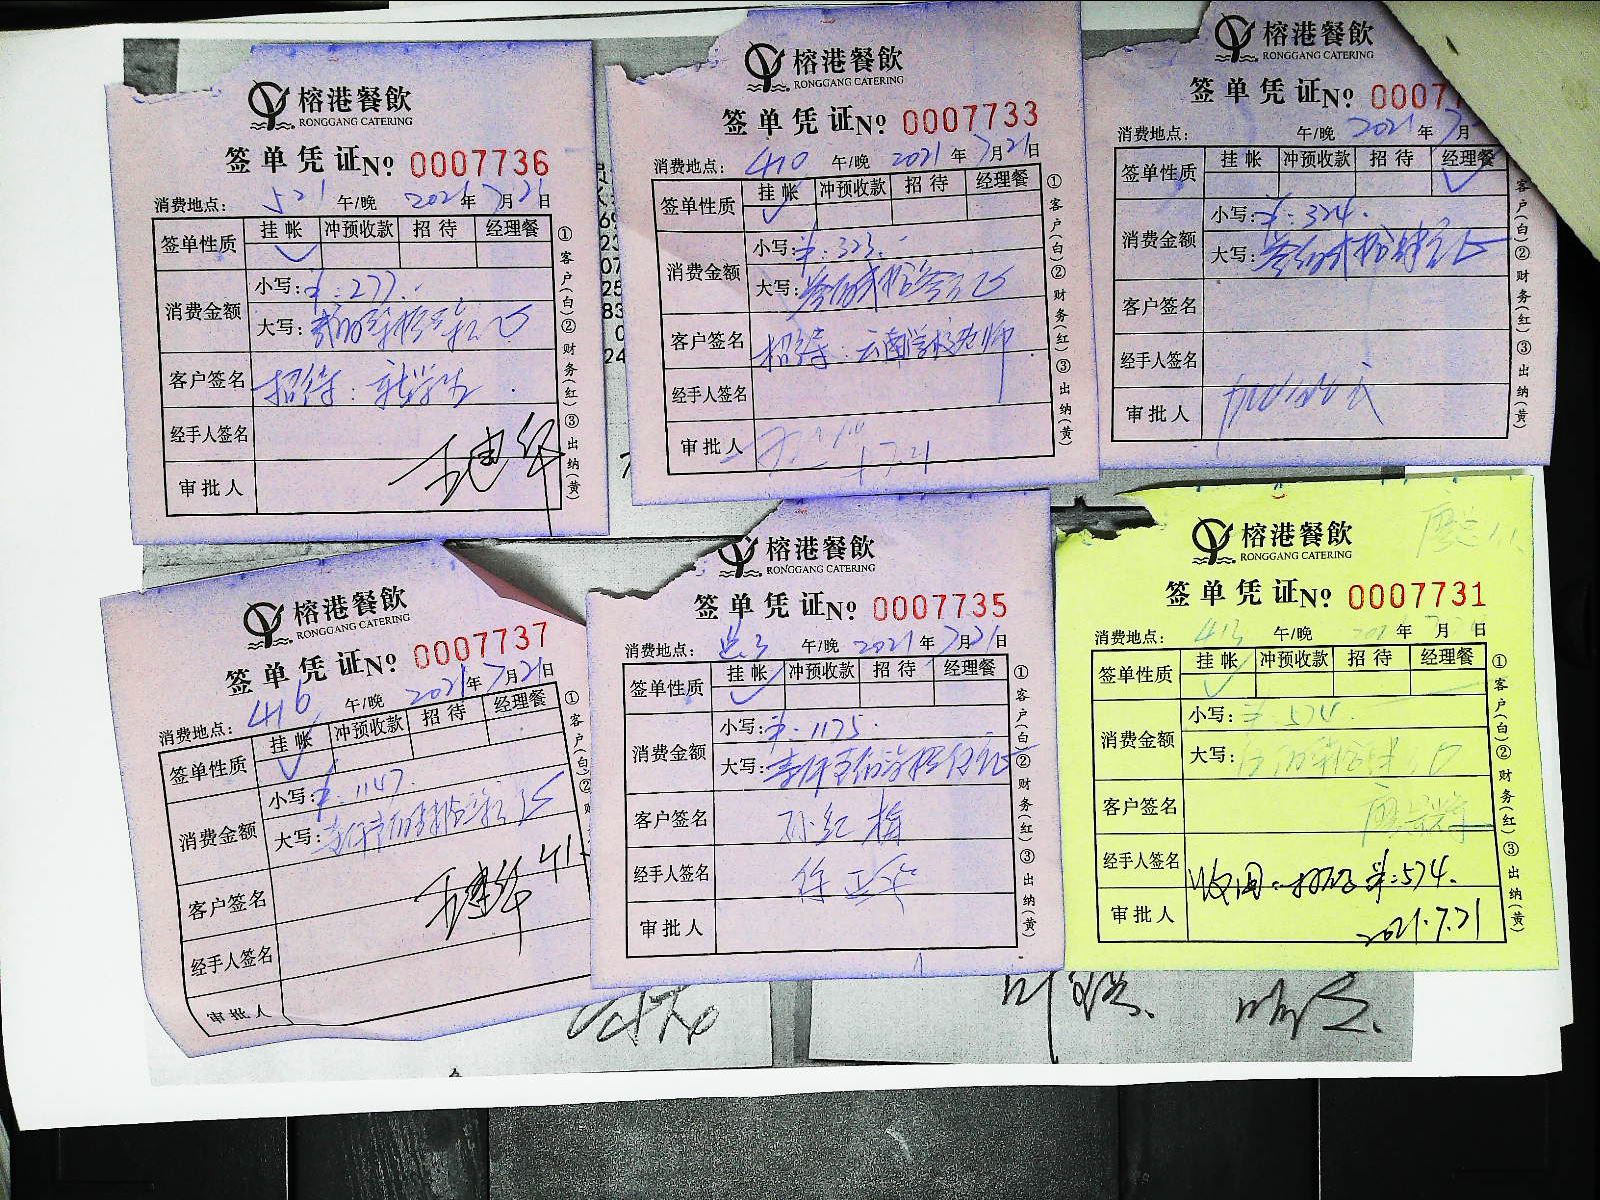 榕港餐飲
RONGGANG CATERING
签单凭证 No 0007736
消费地点: 521 午/晚 2021年7月21日
签单性质 挂帐 冲预收款 招待 经理餐
消费金额 小写: ¥:277.
大写: 贰佰柒拾柒元正
客户签名 招待:
经手人签名 王建华
审批人
①客户(白)②财务(红)③出纳(黄)
榕港餐飲
RONGGANG CATERING
签单凭证 No 0007733
消费地点: 410 午/晚 2021年7月21日
签单性质 挂帐 冲预收款 招待 经理餐
消费金额 小写: ¥:323.
大写: 叁佰贰拾叁元正
客户签名 招待:云南学校老师
经手人签名
审批人 7.21
①客户(白)②财务(红)③出纳(黄)
榕港餐飲
RONGGANG CATERING
签单凭证 No 0007
消费地点: 午/晚 2021年7月
签单性质 挂帐 冲预收款 招待 经理餐
消费金额 小写: ¥:324.
大写: 叁佰贰拾肆元正
客户签名
经手人签名
审批人
客户(白)②财务(红)③出纳(黄)
榕港餐飲
RONGGANG CATERING
签单凭证 No 0007737
消费地点: 416 午/晚 2021年7月21日
签单性质 挂帐 冲预收款 招待 经理餐
消费金额 小写: ¥:1147.
大写: 壹仟壹佰肆拾柒元正
客户签名 王建华
经手人签名
审批人
①客户(白)②
榕港餐飲
RONGGANG CATERING
签单凭证 No 0007735
消费地点: 午/晚 2021年7月21日
签单性质 挂帐 冲预收款 招待 经理餐
消费金额 小写: ¥:1175.
大写: 壹仟壹佰柒拾伍元正
客户签名 孙红梅
经手人签名 徐正华
审批人
①客户(白)②财务(红)③出纳(黄)
榕港餐飲
RONGGANG CATERING
签单凭证 No 0007731
消费地点: 413 午/晚 2021年7月21日
签单性质 挂帐 冲预收款 招待 经理餐
消费金额 小写: ¥:574.
大写: 伍佰柒拾肆元正
客户签名
经手人签名 收回 ¥:574.
审批人 2021.7.21
①客户(白)②财务(红)③出纳(黄)